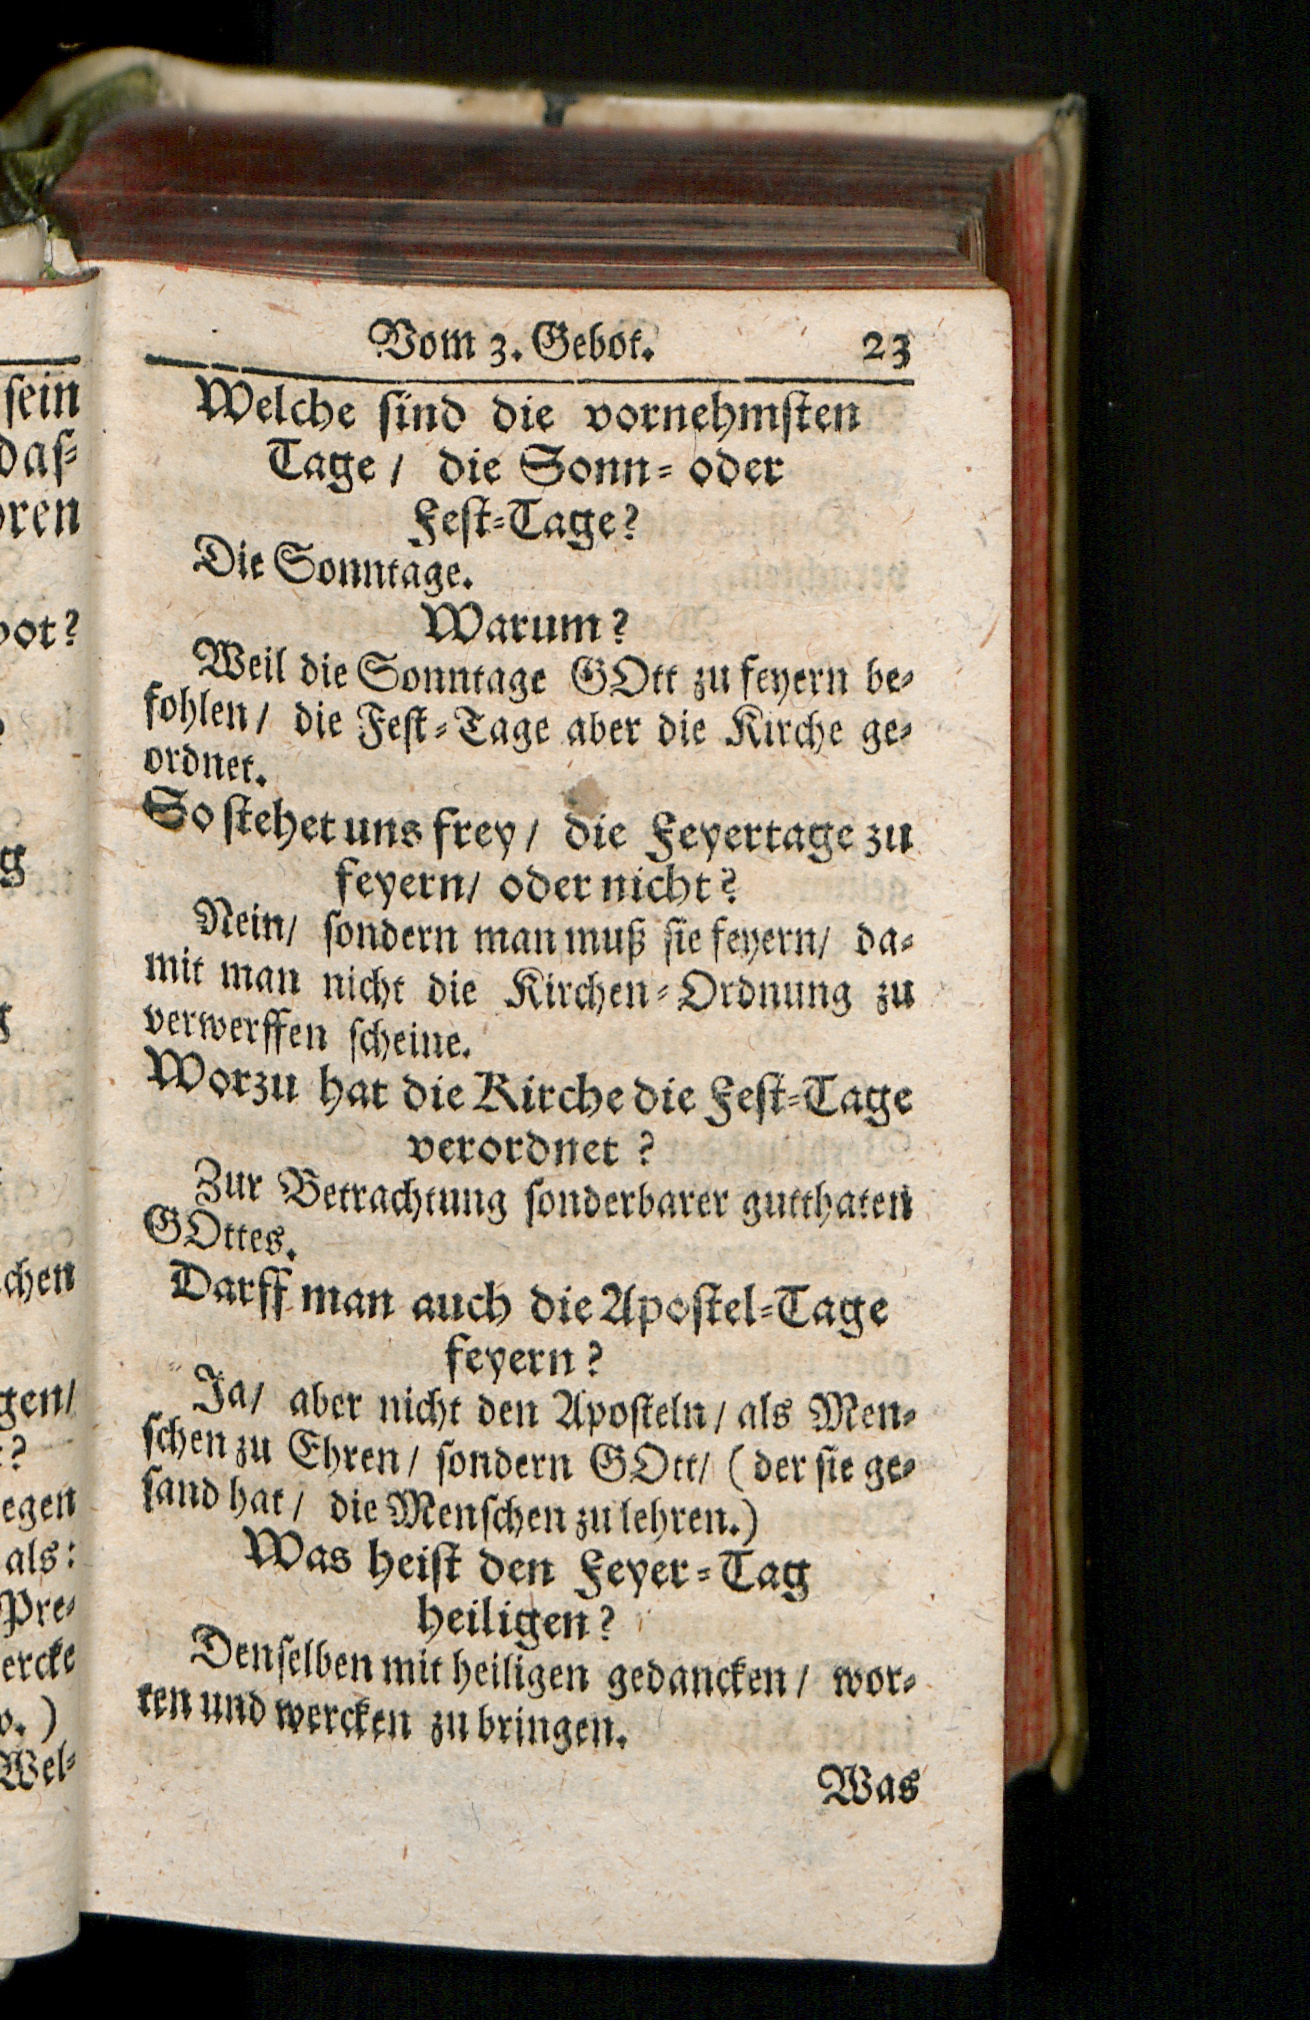 Vom 3. Gebot. 23
Welche sind die vornehmsten
Tage / die Sonn- oder
Fest-Tage?
Die Sonntage.
Warum?
Weil die Sonntage GOtt zu feyern be-
fohlen / die Fest-Tage aber die Kirche ge-
ordnet.
So stehet uns frey / die Feyertage zu
feyern / oder nicht?
Nein / sondern man muß sie feyern / da-
mit man nicht die Kirchen-Ordnung zu
verwerffen scheine.
Worzu hat die Kirche die Fest-Tage
verordnet?
Zur Betrachtung sonderbarer gutthaten
GOttes.
Darff man auch die Apostel-Tage
feyern?
Ja / aber nicht den Aposteln / als Men-
schen zu Ehren / sondern GOtt / (der sie ge-
sand hat / die Menschen zu lehren.)
Was heist den Feyer-Tag
heiligen?
Denselben mit heiligen gedancken / wor-
ten und wercken zu bringen.
Was